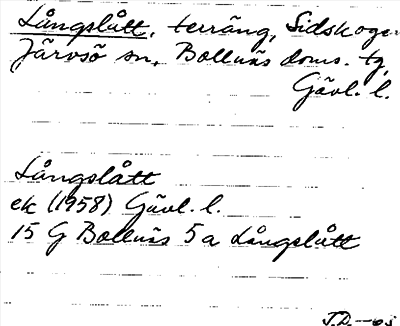 Långslått, terräng, Sidskoge:
Järvsö sn, Bollnäs doms. tg,
Gävl. l.
Långslått
ek (1958) Gävl. l.
15 G Bollnäs 5 a Långslått
J.D.